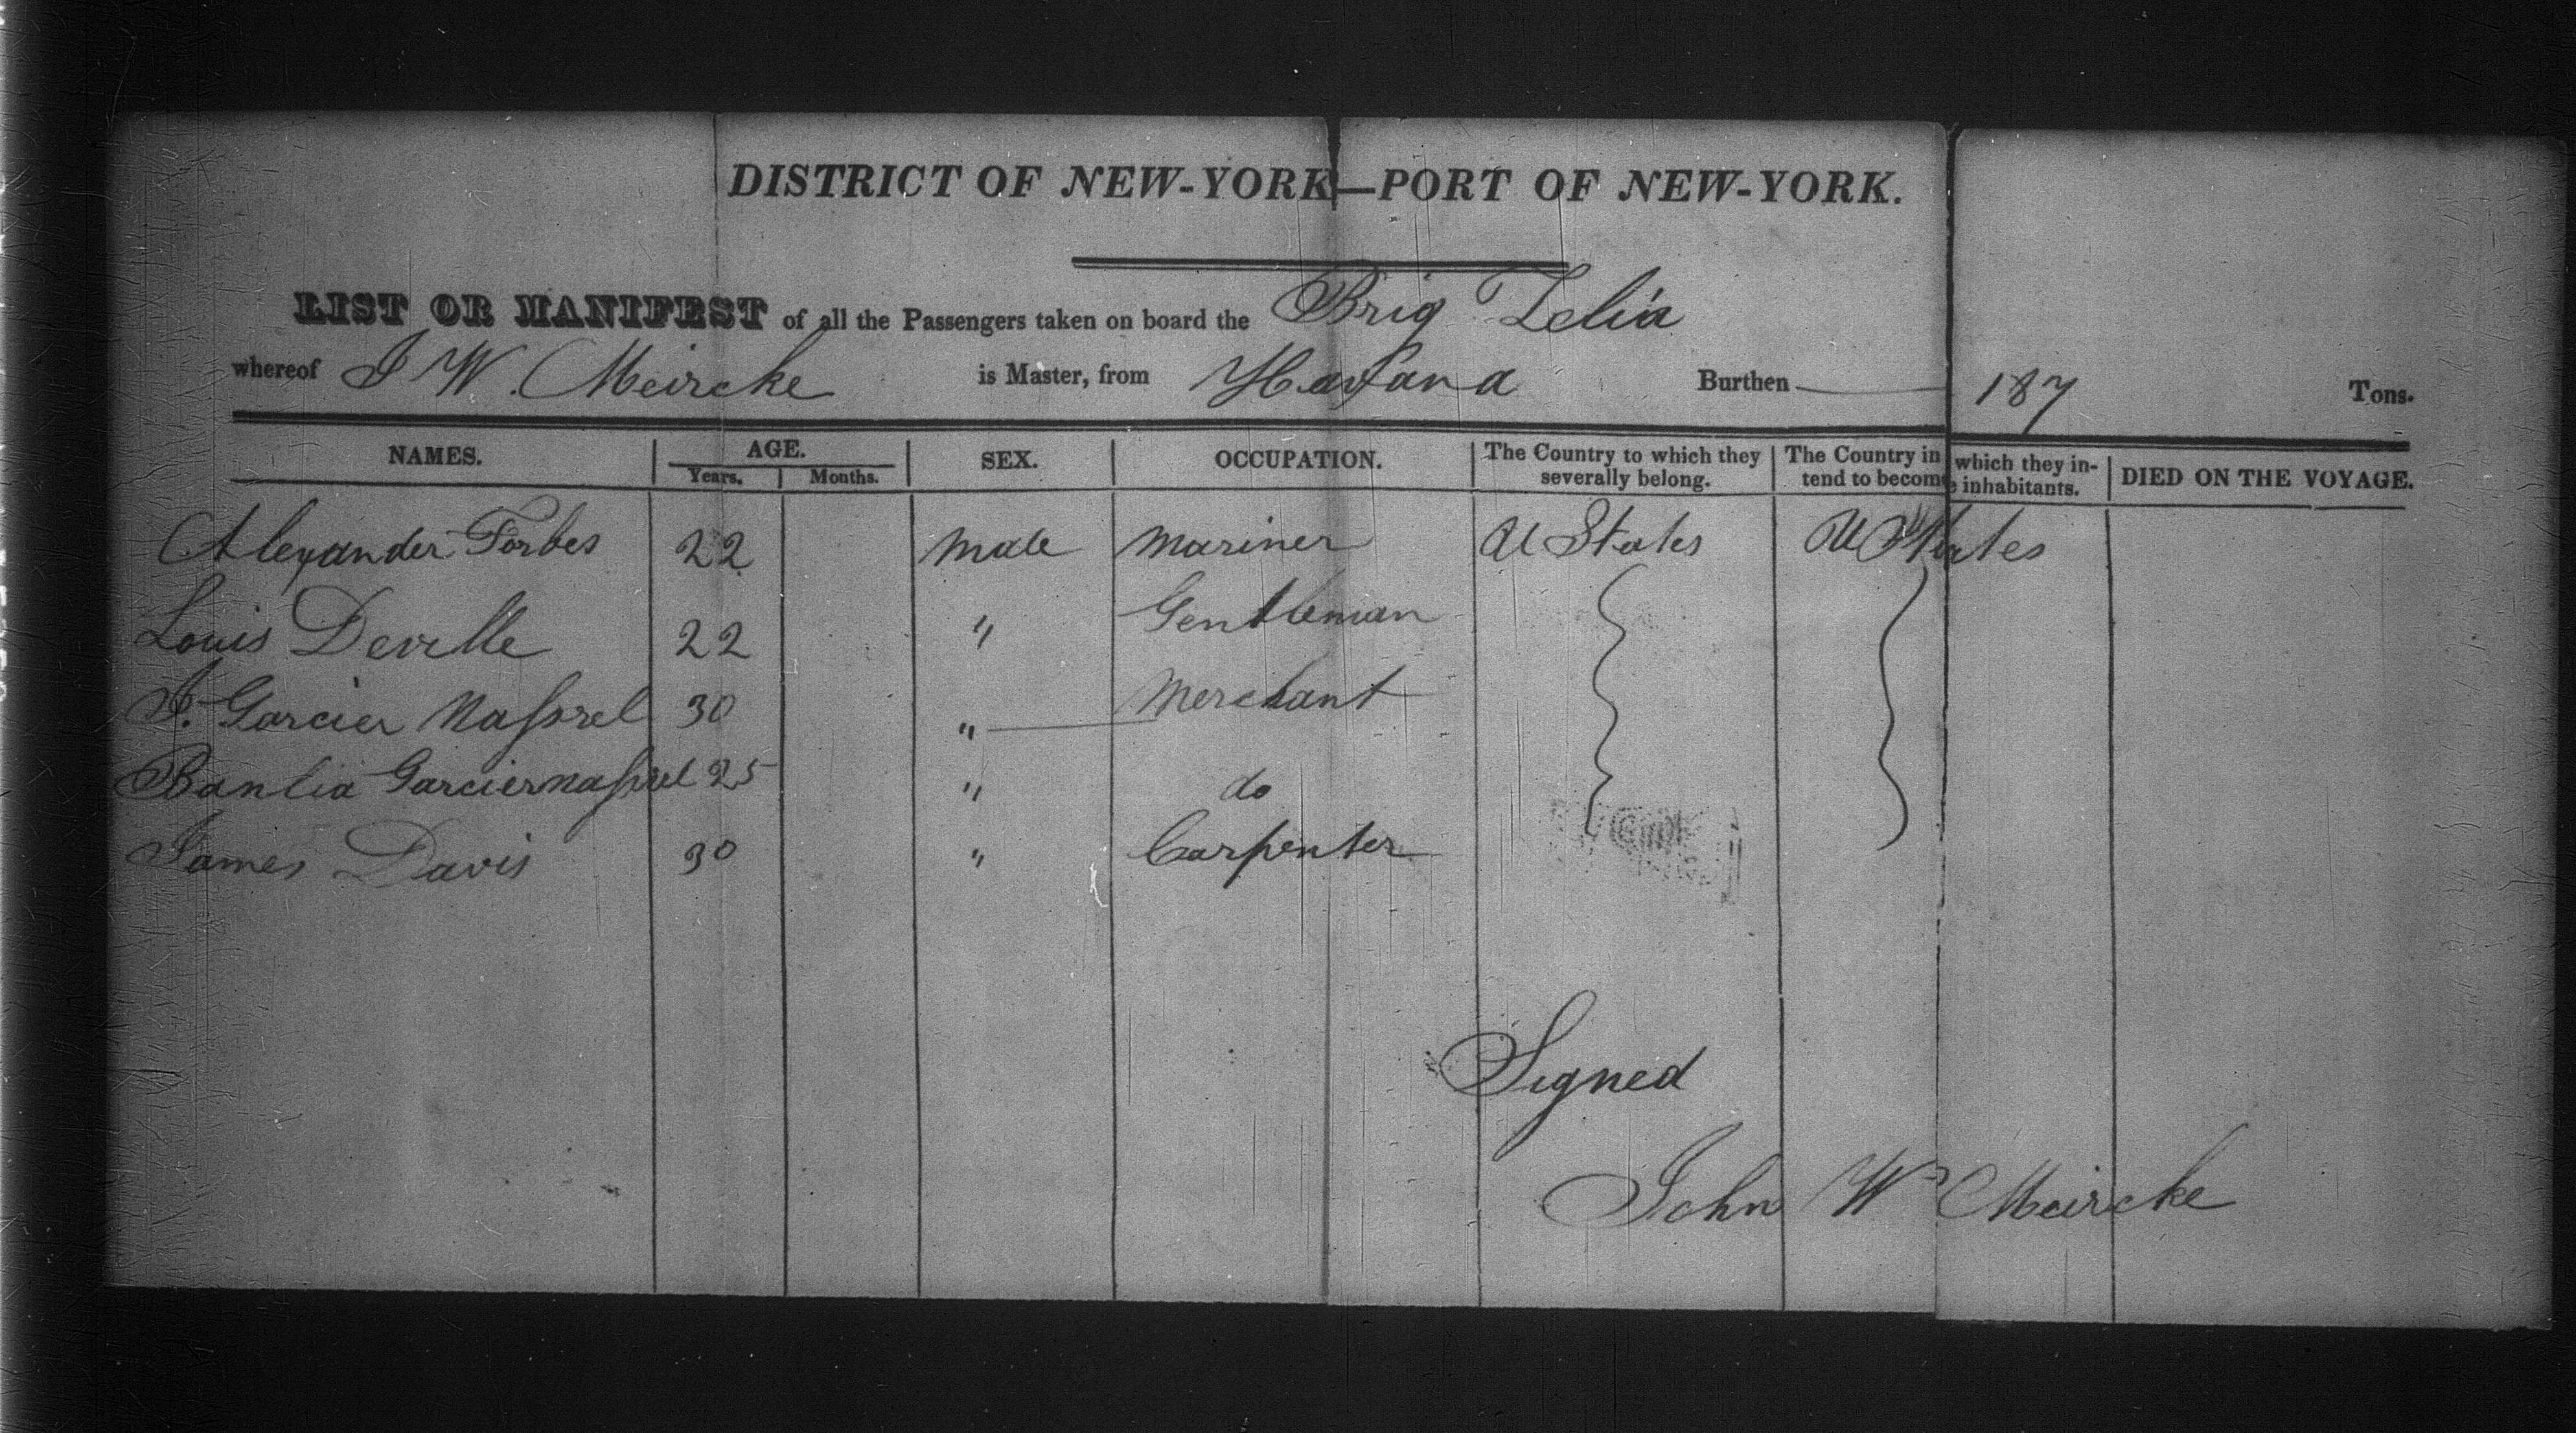 DISTRICT OF NEW-YORK—PORT OF NEW-YORK.
LIST OR MANIFEST of all the Passengers taken on board the Brig Zelia
whereof J W. Meircke is Master, from Havana Burthen 187 Tons.
NAMES. AGE. SEX. OCCUPATION. The Country to which they severally belong. The Country in which they intend to become inhabitants. DIED ON THE VOYAGE.
Years. Months.
Alexander Forbes 22 Male Mariner U States U States
Louis Deville 22 " Gentleman
J. Garcier 30 " Merchant
Garcier 25 " do
James Davis 30 " Carpenter
Signed
John W Meircke